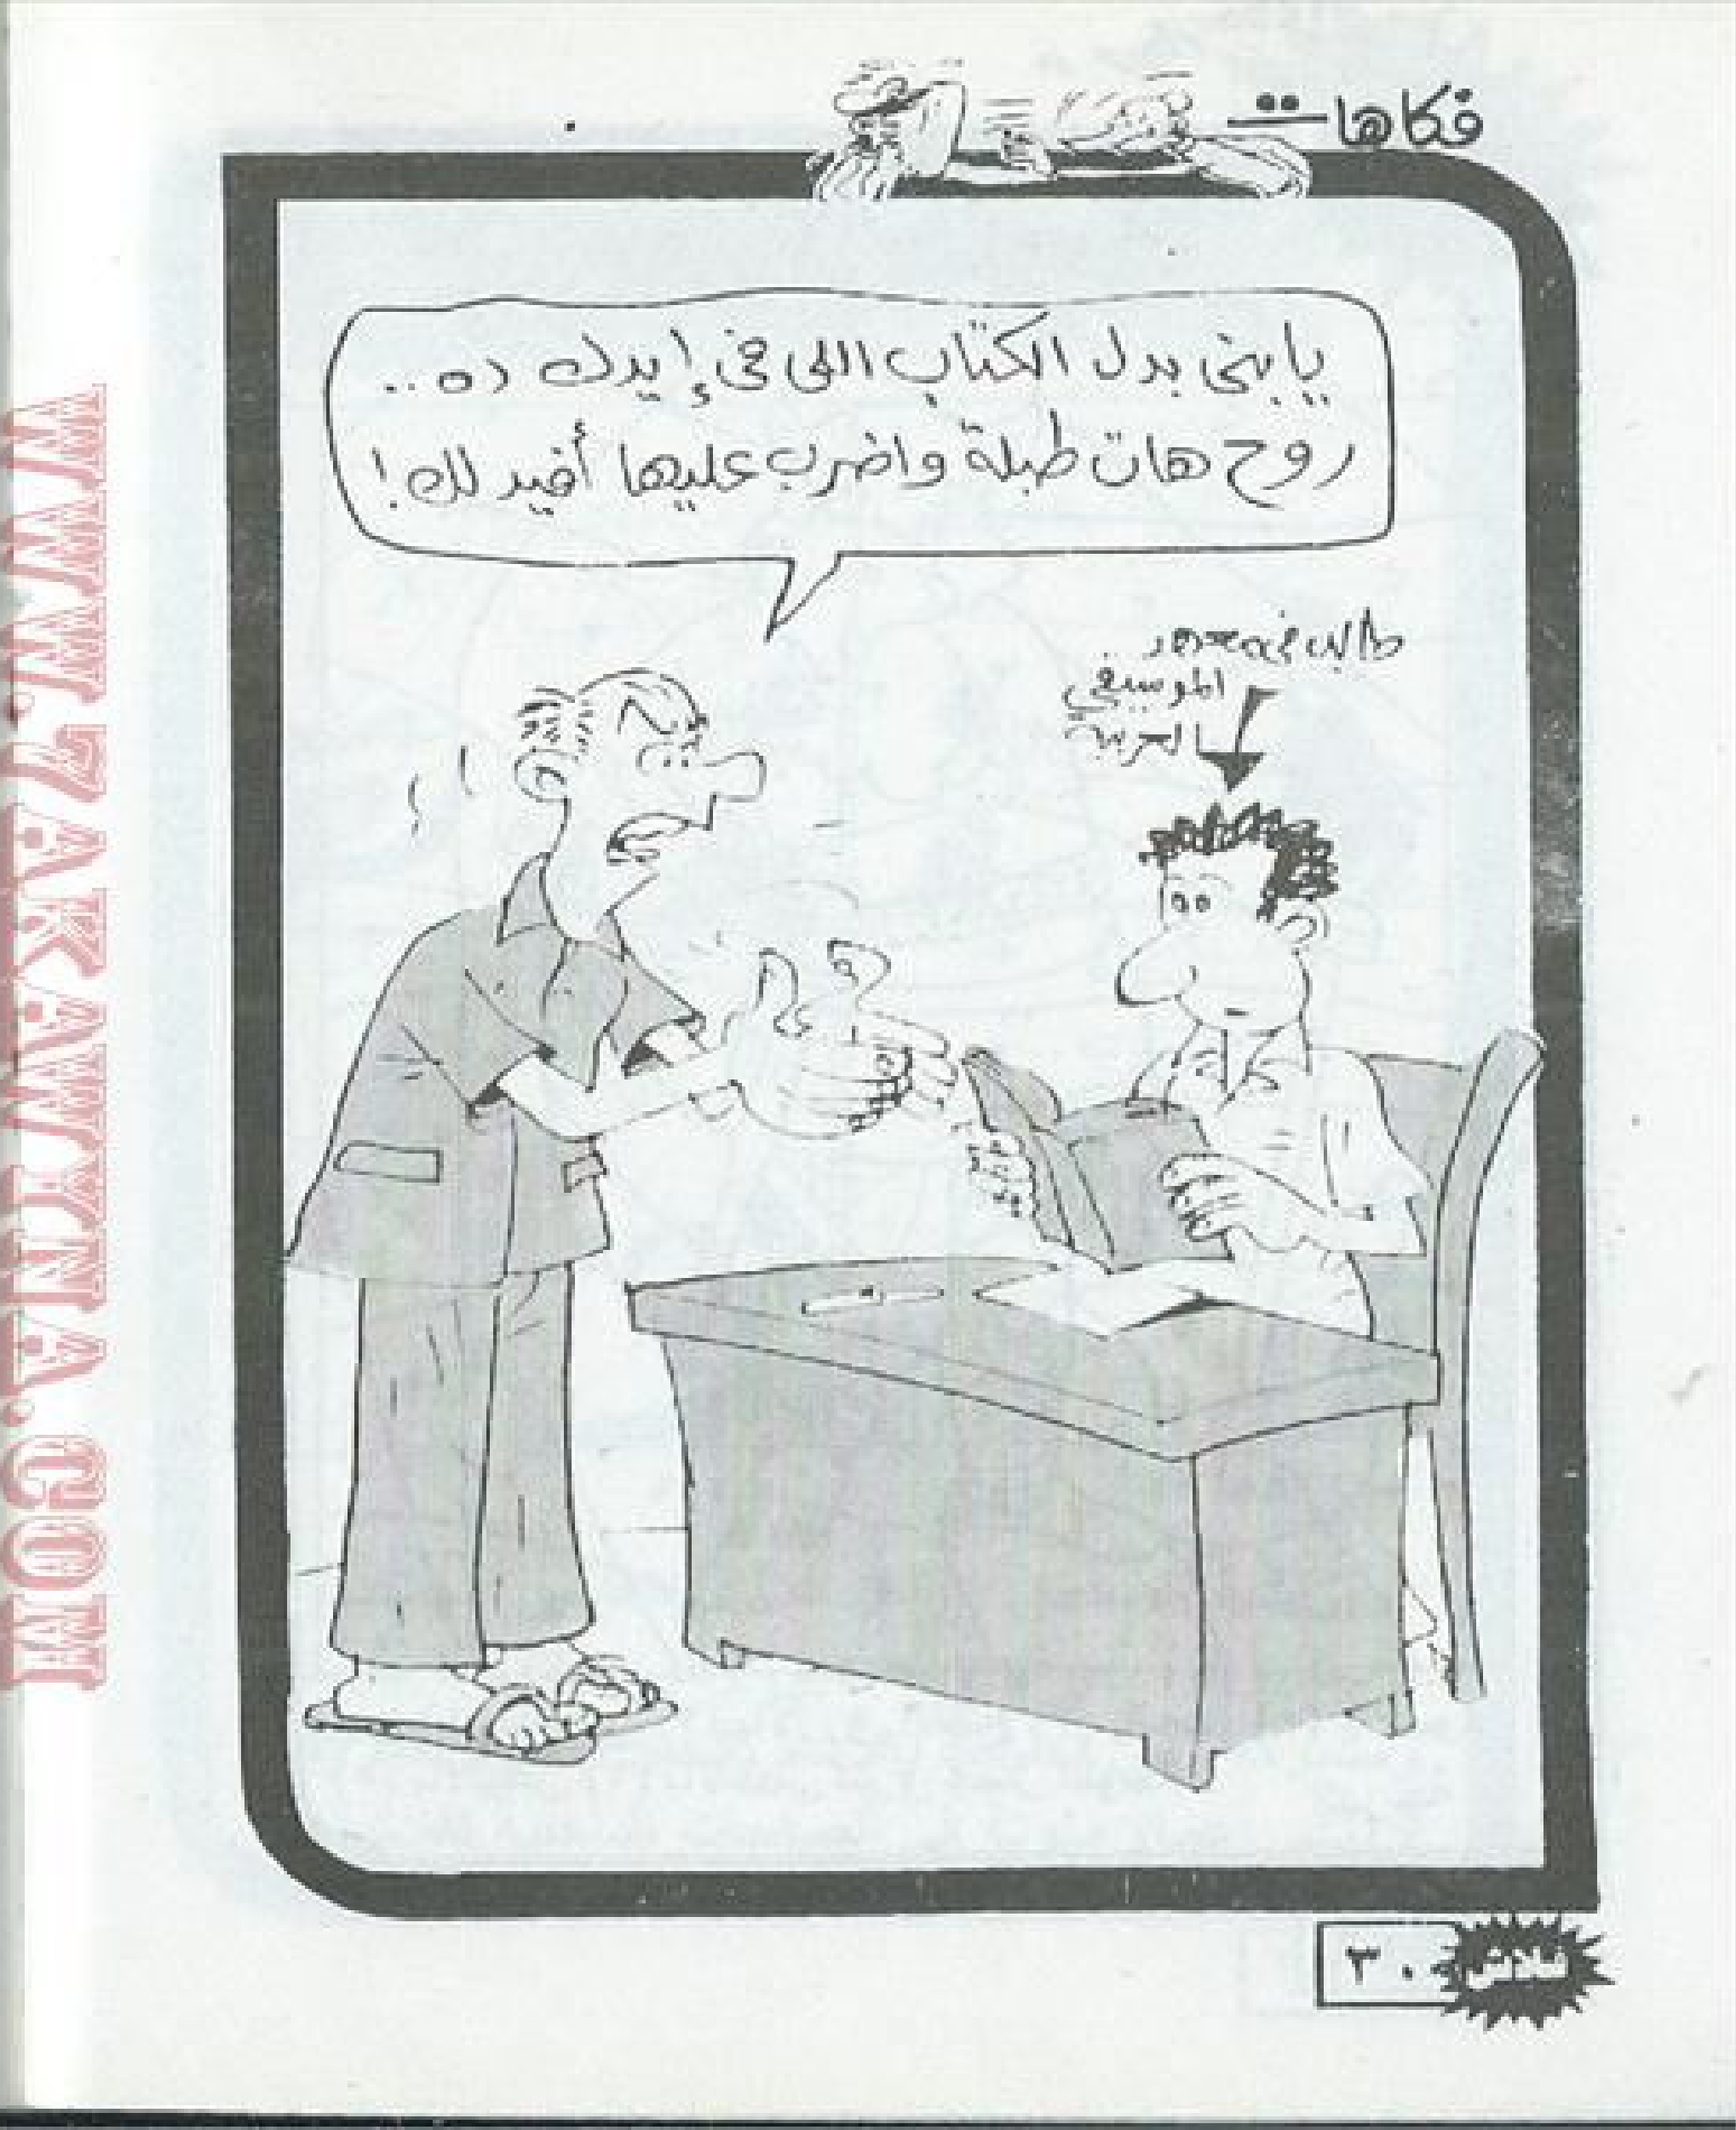 فكاهات
يا بنى بدل الكتاب اللى فى إيدك ده ..
روح هات طبلة واضرب عليها أفيد لك!
طالب فى معهد
الموسيقى
العربية
فلاش
٣٠
WWW.ZAKAWKINA.COM